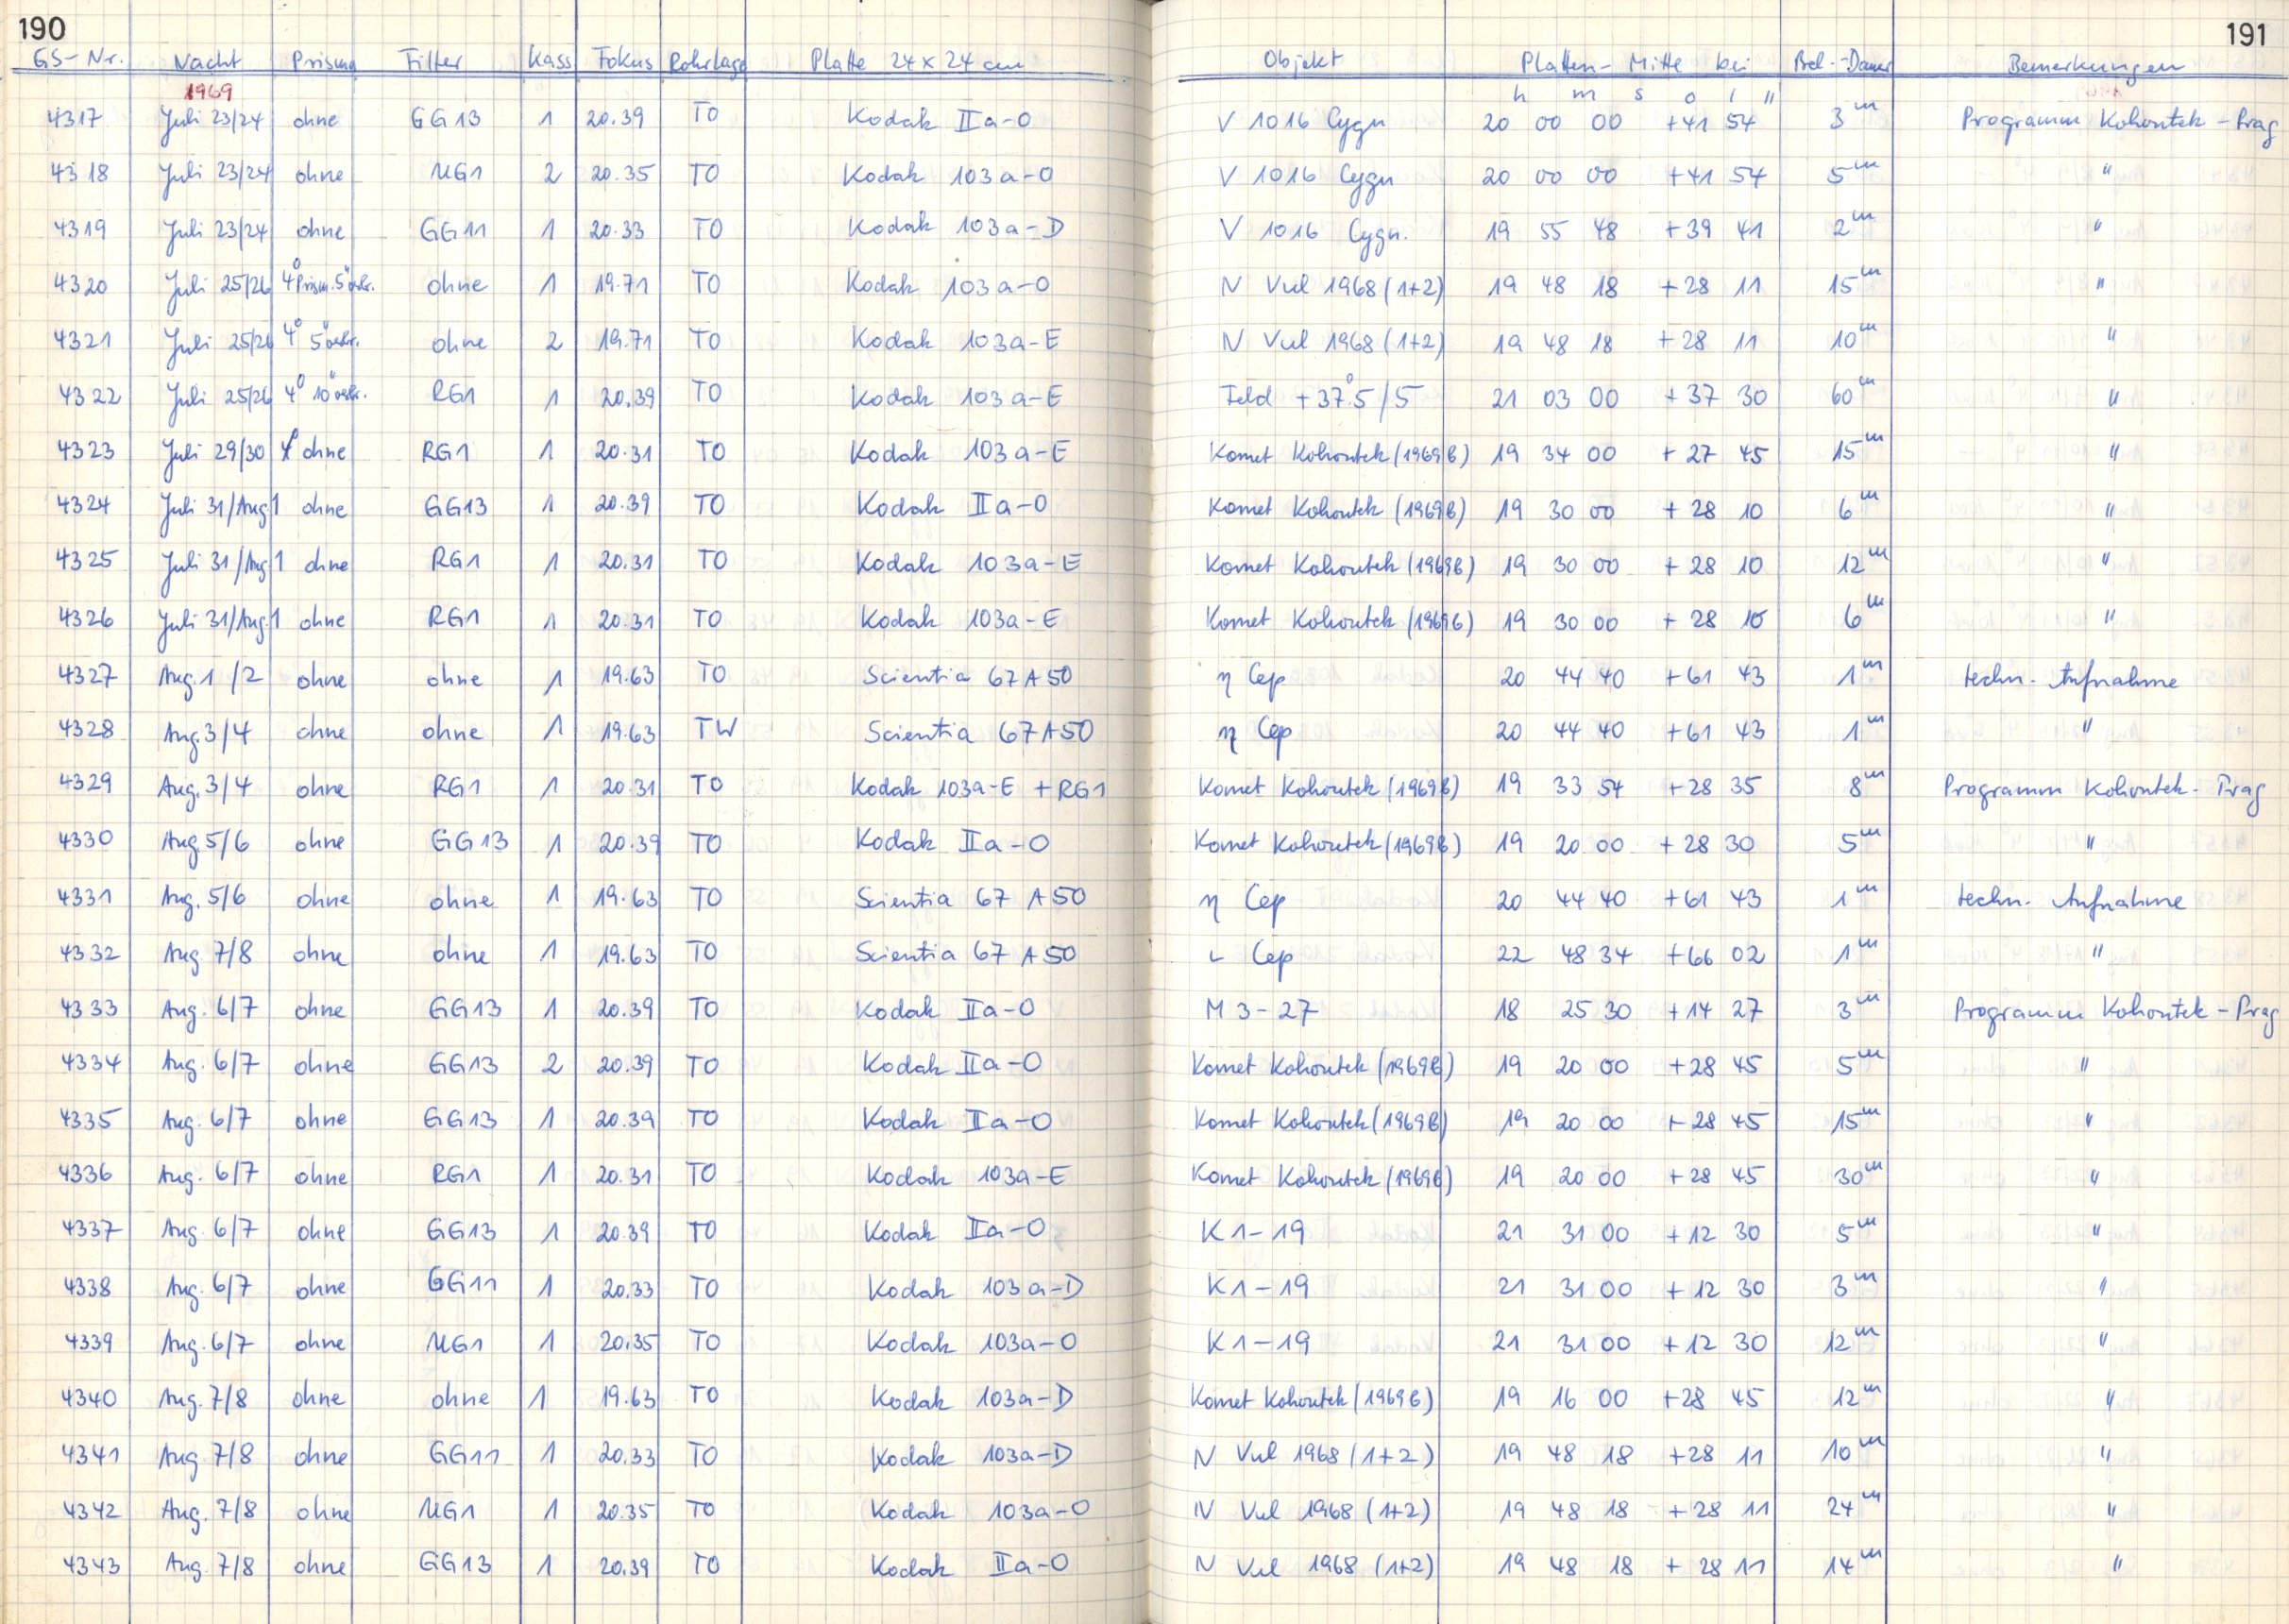 190 191
GS-Nr. Nacht Prisma Filter Kass Fokus Rohrlage Platte 24 x 24 cm Objekt Platten-Mitte bei Bel.-Dauer Bemerkungen
1969 h m s o ' "
4317 Juli 23/24 ohne GG13 1 20.39 TO Kodak IIa-O V 1016 Cygn 20 00 00 +41 54 3m Programm Kohoutek - Prag
4318 Juli 23/24 ohne UG1 2 20.35 TO Kodak 103a-O V 1016 Cygn 20 00 00 +41 54 5m "
4319 Juli 23/24 ohne GG11 1 20.33 TO Kodak 103a-D V 1016 Cygn. 19 55 48 +39 41 2m "
4320 Juli 25/26 4° Prism. 5" ohne 1 19.71 TO Kodak 103a-O N Vul 1968 (1+2) 19 48 18 +28 11 15m "
4321 Juli 25/26 4° 5" ohne 2 19.71 TO Kodak 103a-E N Vul 1968 (1+2) 19 48 18 +28 11 10m "
4322 Juli 25/26 4° 10" RG1 1 20.39 TO Kodak 103a-E Feld +37°.5/5 21 03 00 +37 30 60m "
4323 Juli 29/30 ohne RG1 1 20.31 TO Kodak 103a-E Komet Kohoutek (1969b) 19 34 00 +27 45 15m "
4324 Juli 31/Aug 1 ohne GG13 1 20.39 TO Kodak IIa-O Komet Kohoutek (1969b) 19 30 00 +28 10 6m "
4325 Juli 31/Aug 1 ohne RG1 1 20.31 TO Kodak 103a-E Komet Kohoutek (1969b) 19 30 00 +28 10 12m "
4326 Juli 31/Aug. 1 ohne RG1 1 20.31 TO Kodak 103a-E Komet Kohoutek (1969b) 19 30 00 +28 10 6m "
4327 Aug. 1/2 ohne ohne 1 19.63 TO Scientia 67A50 η Cep 20 44 40 +61 43 1m techn. Aufnahme
4328 Aug. 3/4 ohne ohne 1 19.63 TW Scientia 67A50 η Cep 20 44 40 +61 43 1m "
4329 Aug. 3/4 ohne RG1 1 20.31 TO Kodak 103a-E + RG1 Komet Kohoutek (1969b) 19 33 54 +28 35 8m Programm Kohoutek - Prag
4330 Aug. 5/6 ohne GG13 1 20.39 TO Kodak IIa-O Komet Kohoutek (1969b) 19 20 00 +28 30 5m "
4331 Aug. 5/6 ohne ohne 1 19.63 TO Scientia 67 A50 η Cep 20 44 40 +61 43 1m techn. Aufnahme
4332 Aug 7/8 ohne ohne 1 19.63 TO Scientia 67 A50 ι Cep 22 48 34 +66 02 1m "
4333 Aug. 6/7 ohne GG13 1 20.39 TO Kodak IIa-O M 3-27 18 25 30 +14 27 3m Programm Kohoutek - Prag
4334 Aug. 6/7 ohne GG13 2 20.39 TO Kodak IIa-O Komet Kohoutek (1969b) 19 20 00 +28 45 5m "
4335 Aug. 6/7 ohne GG13 1 20.39 TO Kodak IIa-O Komet Kohoutek (1969b) 19 20 00 +28 45 15m "
4336 Aug. 6/7 ohne RG1 1 20.31 TO Kodak 103a-E Komet Kohoutek (1969b) 19 20 00 +28 45 30m "
4337 Aug. 6/7 ohne GG13 1 20.39 TO Kodak IIa-O K 1-19 21 31 00 +12 30 5m "
4338 Aug. 6/7 ohne GG11 1 20.33 TO Kodak 103a-D K 1-19 21 31 00 +12 30 3m "
4339 Aug. 6/7 ohne UG1 1 20.35 TO Kodak 103a-O K 1-19 21 31 00 +12 30 12m "
4340 Aug. 7/8 ohne ohne 1 19.63 TO Kodak 103a-D Komet Kohoutek (1969b) 19 16 00 +28 45 12m "
4341 Aug. 7/8 ohne GG11 1 20.33 TO Kodak 103a-D N Vul 1968 (1+2) 19 48 18 +28 11 10m "
4342 Aug. 7/8 ohne UG1 1 20.35 TO Kodak 103a-O N Vul 1968 (1+2) 19 48 18 +28 11 24m "
4343 Aug. 7/8 ohne GG13 1 20.39 TO Kodak IIa-O N Vul 1968 (1+2) 19 48 18 +28 11 14m "